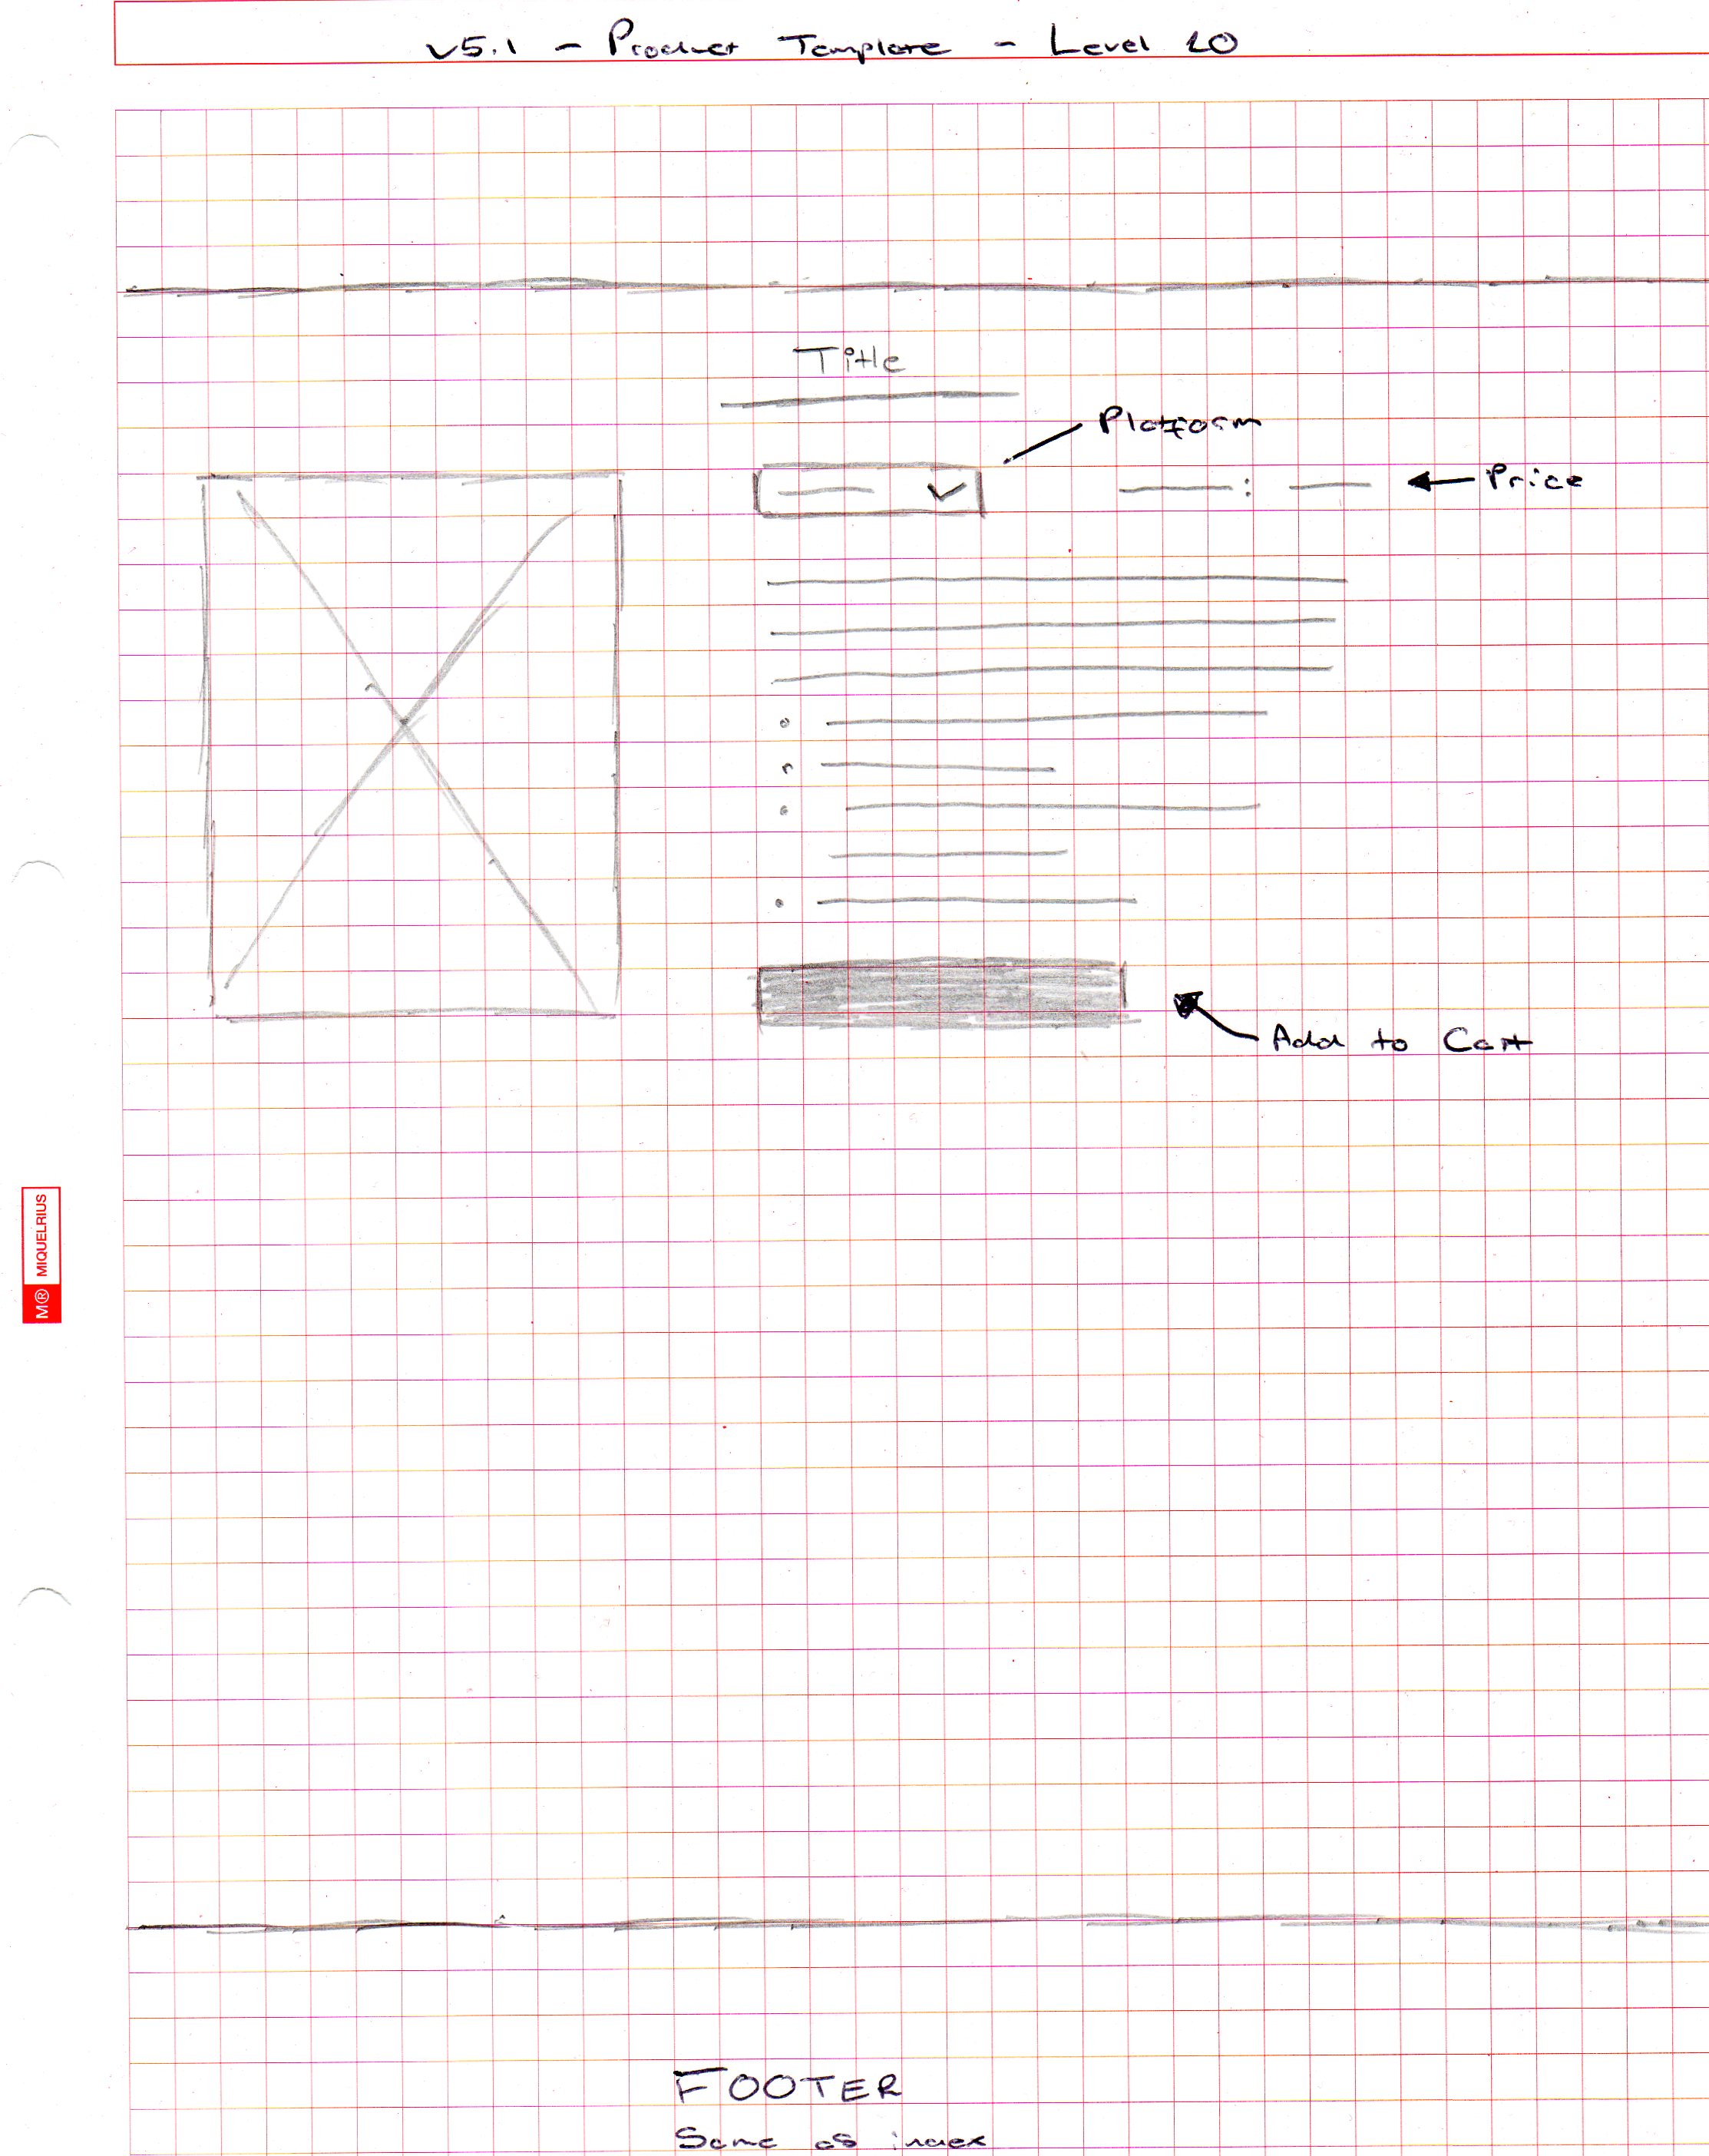 v5.1 - Product Template - Level 20
Title
Platform
: Price
Add to Cart
M® MIQUELRIUS
FOOTER
Same as index